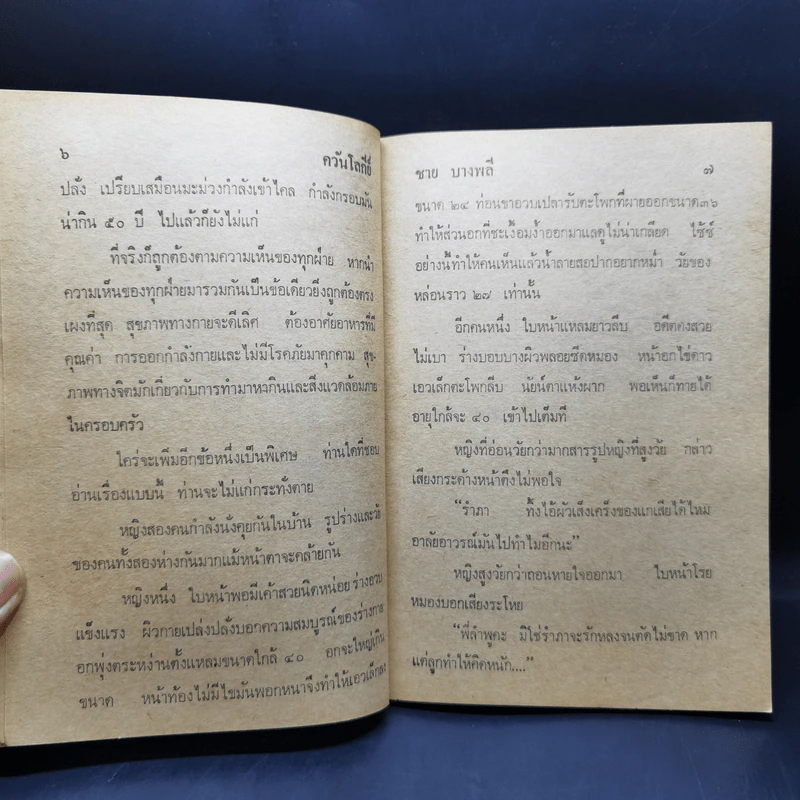 ๖ ควันโลกีย์
ปลั่ง เปรียบเสมือนมะม่วงกำลังเข้าไคล กำลังกรอบมัน
น่ากิน ๕๐ ปี ไปแล้วก็ยังไม่แก่
ที่จริงก็ถูกต้องตามความเห็นของทุกฝ่าย หากนำ
ความเห็นของทุกฝ่ายมารวมกันเป็นข้อเดียวยิ่งถูกต้องตรง
เผงที่สุด สุขภาพทางกายจะดีเลิศ ต้องอาศัยอาหารที่มี
คุณค่า การออกกำลังกายและไม่มีโรคภัยมาคุกคาม สุข-
ภาพทางจิตมักเกี่ยวกับการทำมาหากินและสิ่งแวดล้อมภาย
ในครอบครัว
ใคร่จะเพิ่มอีกข้อหนึ่งเป็นพิเศษ ท่านใดที่ชอบ
อ่านเรื่องแบบนี้ ท่านจะไม่แก่กระทั่งตาย
หญิงสองคนกำลังนั่งคุยกันในบ้าน รูปร่างและวัย
ของคนทั้งสองห่างกันมากแม้หน้าตาจะคล้ายกัน
หญิงหนึ่ง ใบหน้าพอมีเค้าสวยนิดหน่อย ร่างอวบ
แข็งแรง ผิวกายเปล่งปลั่งบอกความสมบูรณ์ของร่างกาย
อกพุ่งตระหง่านตั้งแหลมขนาดใกล้ ๔๐ อกจะใหญ่เกิน
ขนาด หน้าท้องไม่มีไขมันพอกหนาจึงทำให้เอวเล็กลง
ชาย บางพลี ๗
ขนาด ๒๔ ท่อนขาอวบเปลารับตะโพกที่ผายออกขนาด๓๖
ทำให้ส่วนอกที่ชะเงื้อมง้ำออกมาแลดูไม่น่าเกลียด ไซ้ซ์
อย่างนี้ทำให้คนเห็นแล้วน้ำลายสอปากอยากหม่ำ วัยของ
หล่อนราว ๒๗ เท่านั้น
อีกคนหนึ่ง ใบหน้าแหลมยาวลีบ อดีตคงสวย
ไม่เบา ร่างบอบบางผิวพลอยซีดหมอง หน้าอกไข่ดาว
เอวเล็กตะโพกลีบ นัยน์ตาแห้งผาก พอเห็นก็ทายได้
อายุใกล้จะ ๔๐ เข้าไปเต็มที
หญิงที่อ่อนวัยกว่ามากสารรูปหญิงที่สูงวัย กล่าว
เสียงกระด้างหน้าตึงไม่พอใจ
“รำภา ทิ้งไอ้ผัวเส็งเคร็งของแกเสียได้ไหม
อาลัยอาวรณ์มันไปทำไมอีกนะ”
หญิงสูงวัยกว่าถอนหายใจออกมา ใบหน้าโรย
หมองบอกเสียงระโหย
“พี่ลำพูคะ มิใช่รำภาจะรักหลงจนตัดไม่ขาด หาก
แต่ลูกทำให้คิดหนัก....”